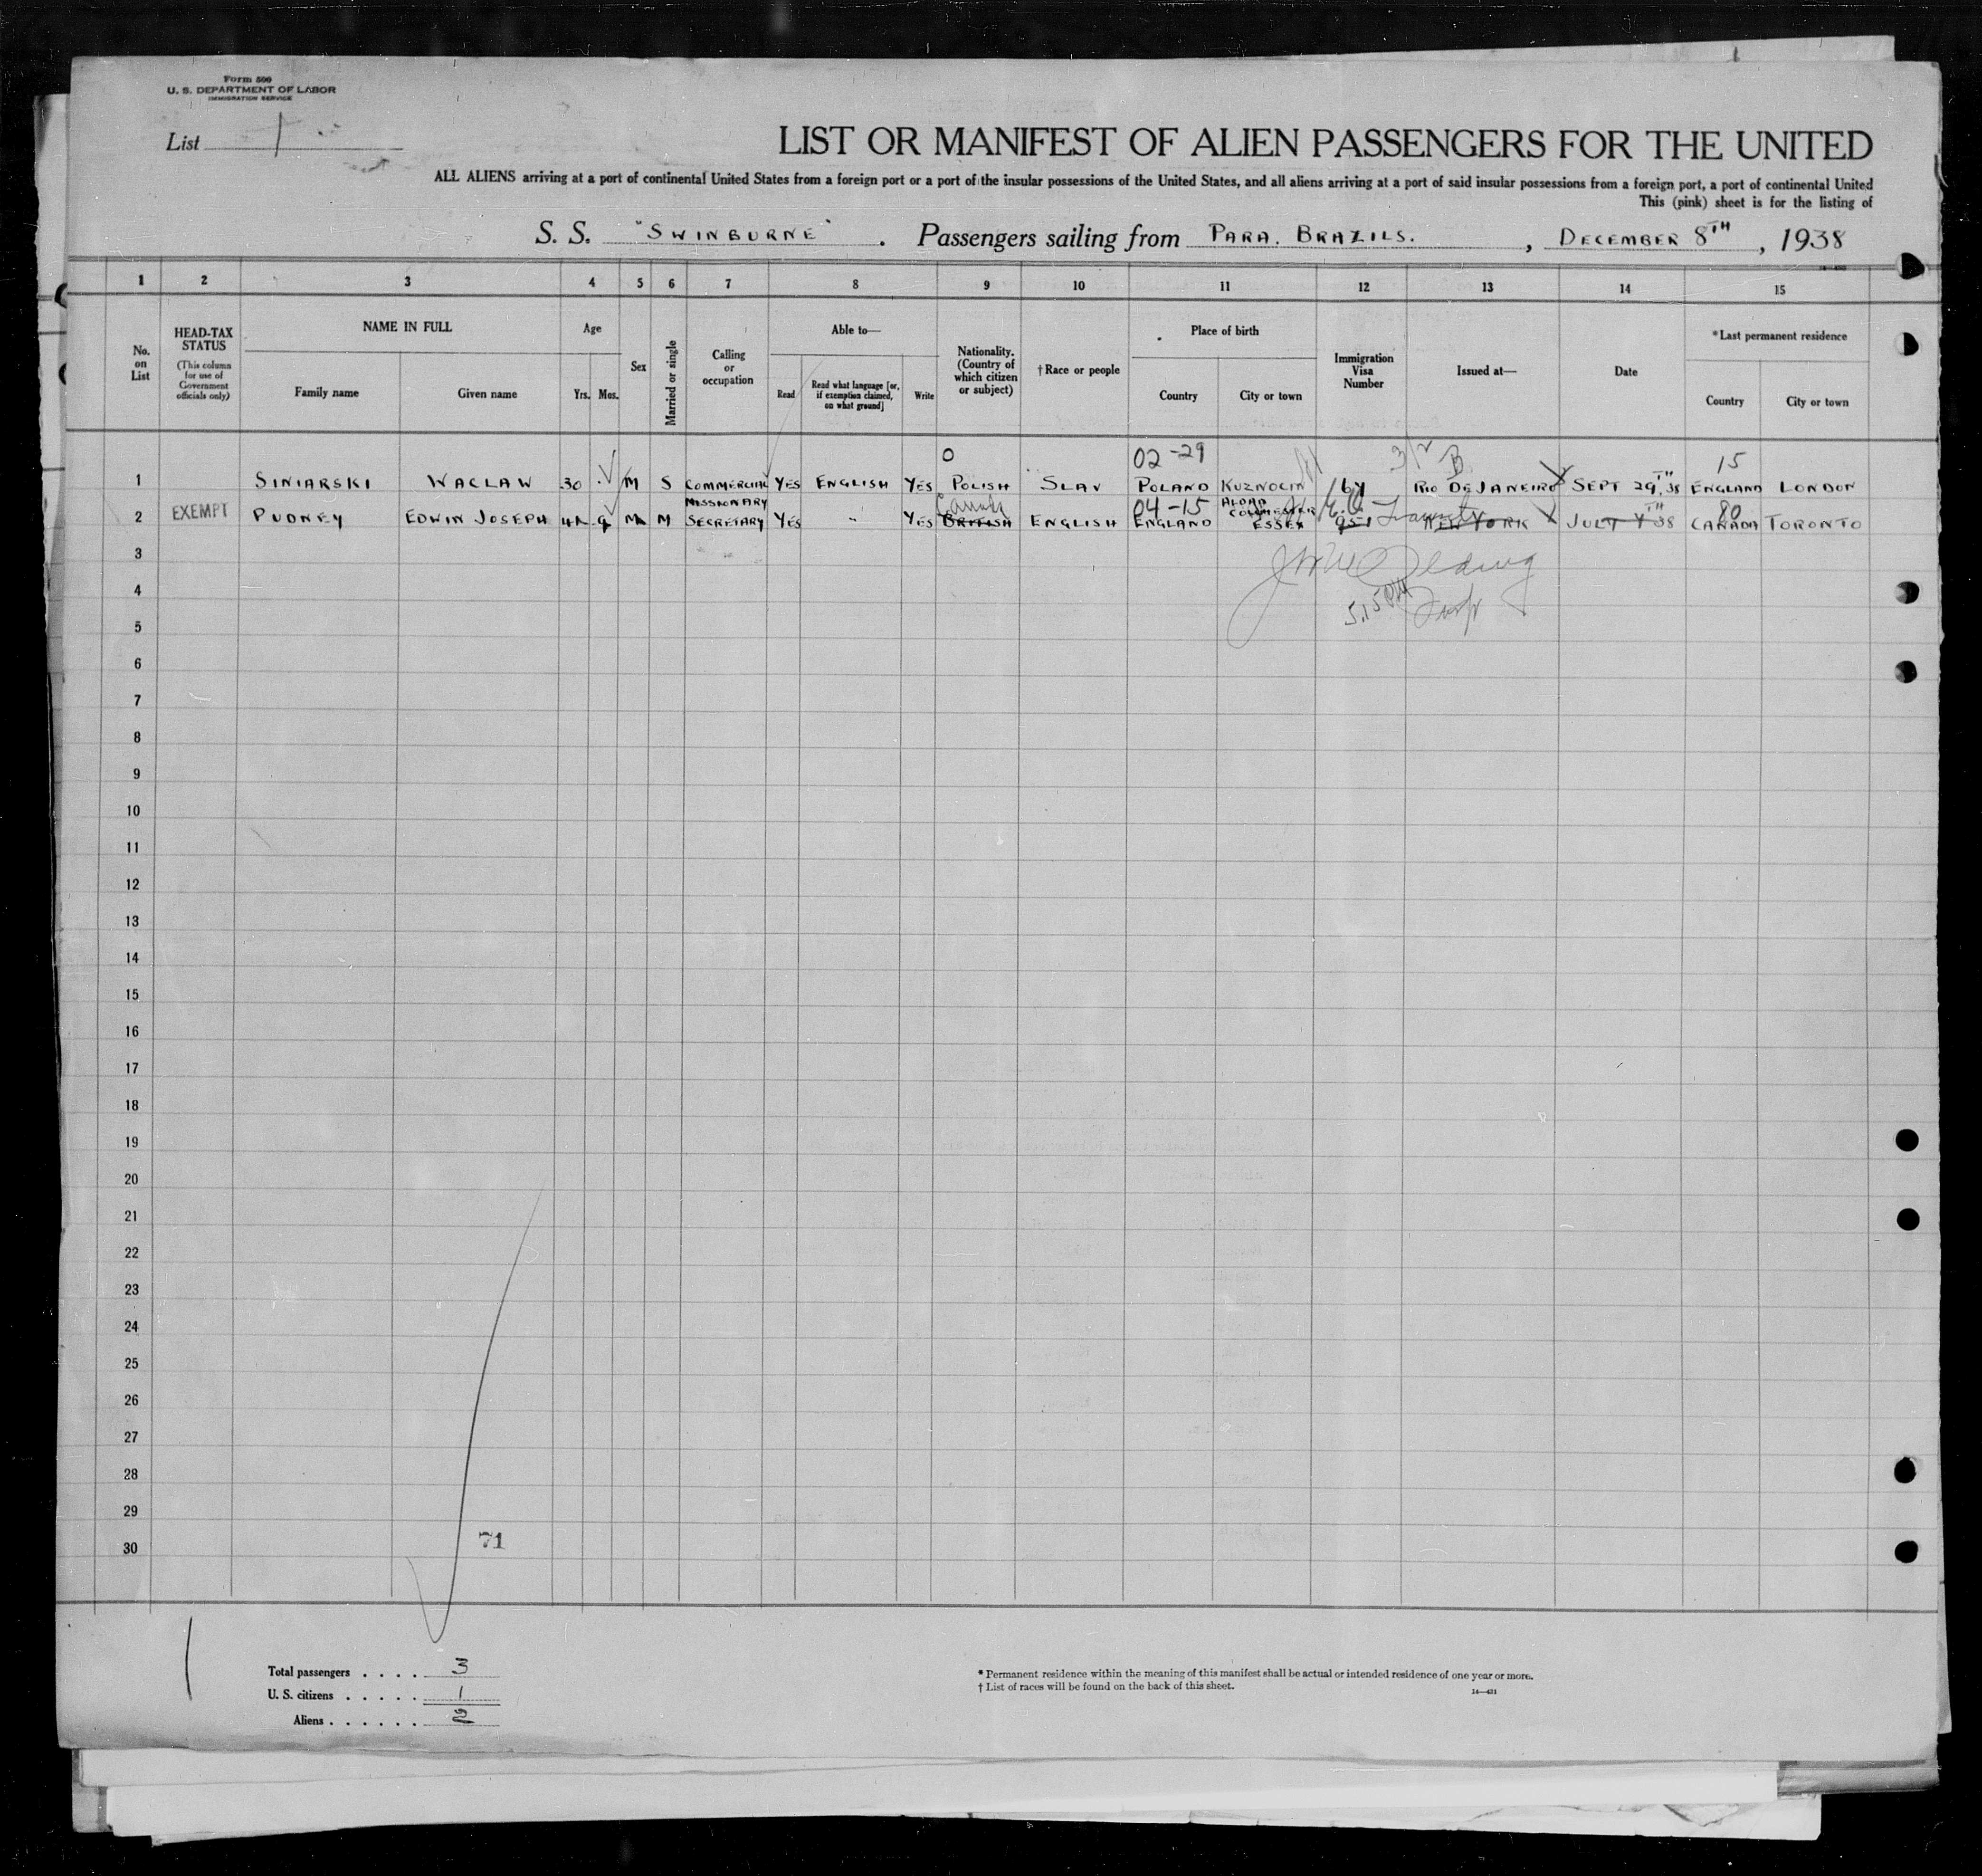 Form 500
U. S. DEPARTMENT OF LABOR
IMMIGRATION SERVICE
List 1
LIST OR MANIFEST OF ALIEN PASSENGERS FOR THE UNITED
ALL ALIENS arriving at a port of continental United States from a foreign port or a port of the insular possessions of the United States, and all aliens arriving at a port of said insular possessions from a foreign port, a port of continental United
This (pink) sheet is for the listing of
S. S. "SWINBURNE". Passengers sailing from PARA. BRAZILS., DECEMBER 8TH, 1938
1 2 3 4 5 6 7 8 9 10 11 12 13 14 15
No. on List
HEAD-TAX STATUS (This column for use of Government officials only)
NAME IN FULL
Family name
Given name
Age
Yrs. Mos.
Sex
Married or single
Calling or occupation
Able to—
Read
Read what language [or, if exemption claimed, on what ground]
Write
Nationality. (Country of which citizen or subject)
†Race or people
Place of birth
Country
City or town
Immigration Visa Number
Issued at—
Date
*Last permanent residence
Country
City or town
0 02-29 3/2 B 15
1 SINIARSKI WACLAW 30 M S COMMERCIAL YES ENGLISH YES POLISH SLAV POLAND KUZNOCIN RIO DE JANEIRO SEPT 29TH, 38 ENGLAND LONDON
MISSIONARY 04-15 80
2 EXEMPT PUDNEY EDWIN JOSEPH M M SECRETARY YES " YES BRITISH ENGLISH ENGLAND ESSEX 951 NEW YORK JULY 38 CANADA TORONTO
3
4
5.15 PM Insp
5
6
7
8
9
10
11
12
13
14
15
16
17
18
19
20
21
22
23
24
25
26
27
28
29
71
30
Total passengers . . . . 3
U. S. citizens . . . . . 1
Aliens . . . . . . 2
* Permanent residence within the meaning of this manifest shall be actual or intended residence of one year or more.
† List of races will be found on the back of this sheet.
14—421